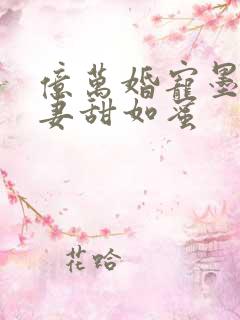 億萬婚寵墨
妻甜如蜜
花哈